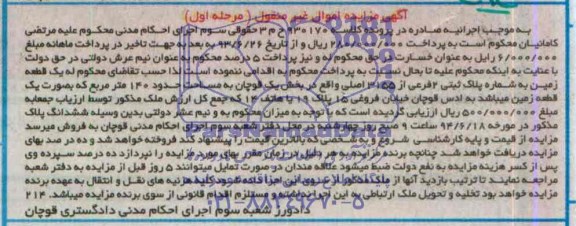 آگهی مزایده اموال غیر منقول ( مرحله اول)
به موجب اجرائیه صادره در پرونده کلاسه ۹۳۰۱۷۰ ج ۳ حقوقی سوم اجرای احکام مدنی محکوم علیه مرتضی
کامانیان محکوم است به پرداخت ریال و از تاریخ ۹۳/۶/۲۶ به بعد به جهت تاخیر در پرداخت ماهانه مبلغ
۶/۰۰۰/۰۰۰ رایل به عنوان خسارت حق محکوم له و نیز پرداخت ۵ درصد محکوم به عنوان نیم عرش دولتی در حق دولت
با عنایت به اینکه محکوم علیه تا بحال نسبت به پرداخت محکوم به اقدامی ننموده است لذا حسب تقاضای محکوم له یک قطعه
زمین به شماره پلاک ثبتی ۲ فرعی از ۲۵۵ اصلی واقع در بخش یک قوچان به مساحت حدود ۱۴۰ متر مربع که بصورت یک
قطعه زمین میباشد به آدس قوچان خیابان فروغی ۱۵ پلاک که جمع کل ارزش ملک مذکور توسط ارزیاب جمعا به
مبلغ ۵۰۰/۰۰۰/۰۰۰ ریال ارزیابی گردیده است که با توجه به میزان محکوم به و نیم عشر دولتی بدین وسیله ششدانگ پلاک
مذکور در مورخه ۹۴/۶/۱۸ ساعت ۹ صبح روز چهارشنبه در محل دفتر شعبه سوم اجرای احکام مدنی قوچان به فروش میرسد
مزایده از قیمت و پایه کارشناسی شروع و به شخصی که بالاترین قیمت را پیشنهاد کند فروخته خواهد شد و ده در صد بهای
مزایده دریافت خواهد شد چنانچه برنده مزایده در موعد مقرر بهای مورد مزایده را نپردازد ده درصد سپرده وی
پس از کسر هزینه مزایده به نفع دولت ضبط میشود علاقه مندان در صورت تمایل میتوانند ۵ روز قبل از مزایده به دفتر شعبه
مراجعه نمایند تا ترتیب بازدید آنها از ملک مذکور هزینه های نقل و انتقال به عهده برنده
مزایده خواهد بود تخلیه و تحویل ملک ارتباطی به این اجرا نداشته و مستلزم اقدام قانونی از سوی برنده مزایده میباشد. ۲۱۴
دادورز شعبه سوم اجرای احکام مدنی دادگستری قوچان
۰۲۱-۸۸۳۴۹۶۷۰-۵